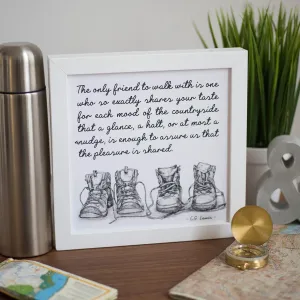 The only friend to walk with is one
who so exactly shares your taste
for each mood of the countryside
that a glance, a halt, or at most a
nudge, is enough to assure us that
the pleasure is shared.